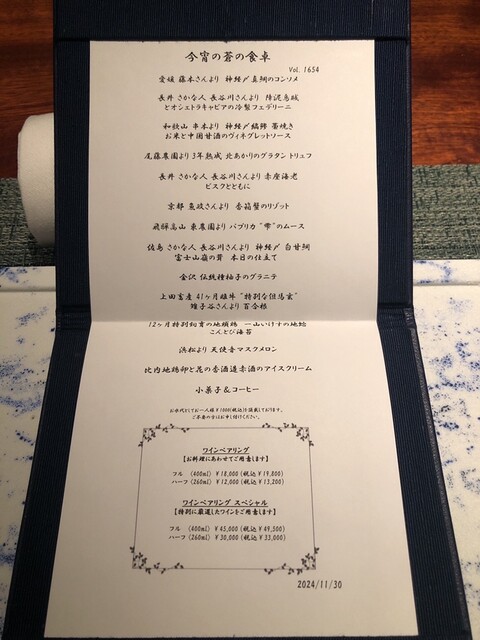 今宵の蒼の食卓
Vol. 1654
愛媛 藤本さんより 神経〆真鯛のコンソメ
長井 さかな人 長谷川さんより 障泥烏賊
とオシェトラキャビアの冷製フェデリーニ
和歌山 串本より 神経〆縞鯵 藁焼き
お米と中国甘酒のヴィネグレットソース
尾藤農園より 3年熟成 北あかりのグラタン トリュフ
長井 さかな人 長谷川さんより 赤座海老
ビスクとともに
京都 気岐さんより 香箱蟹のリゾット
飛騨高山 東農園より パプリカ “雫”のムース
佐島 さかな人 長谷川さんより 神経〆 白甘鯛
富士山嶺の茸 本日の仕立て
金沢 伝統種柚子のグラニテ
上田畜産 41ヶ月雌牛 “特別な但馬玄”
雉子谷さんより 百合根
12ヶ月特別飼育の地横鶏 一山いけすの地蛤
こんとび海苔
浜松より 天使音マスクメロン
比内地鶏卵と花の香酒造赤酒のアイスクリーム
小菓子&コーヒー
お水代としてお一人様¥1000(税込)を頂戴しております。
ご不要の方はお申し付けください。
ワインペアリング
【お料理にあわせてご用意します】
フル (400ml) ¥18,000 (税込¥19,800)
ハーフ (260ml) ¥12,000 (税込¥13,200)
ワインペアリング スペシャル
【特別に厳選したワインをご用意します】
フル (400ml) ¥45,000 (税込¥49,500)
ハーフ (260ml) ¥30,000 (税込¥33,000)
2024/11/30